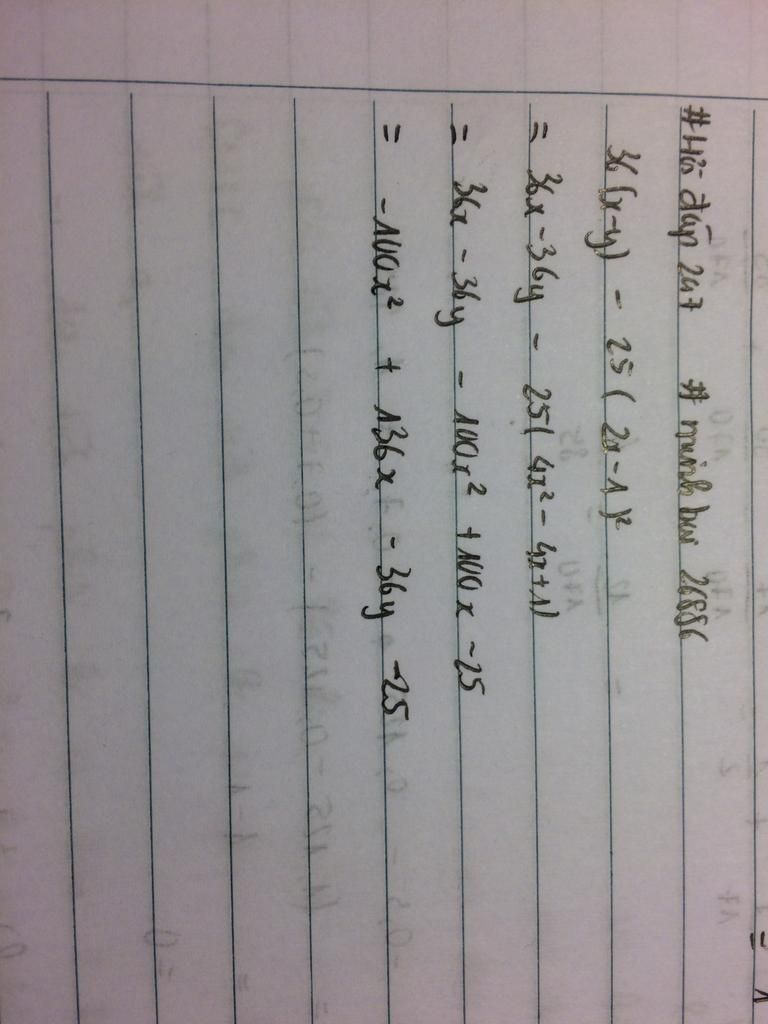 #Hỏi đáp 247 # minh bui 26886
36(x-y) - 25(2x-1)²
= 36x-36y - 25(4x²-4x+1)
= 36x - 36y - 100x² + 100x - 25
= -100x² + 136x - 36y - 25